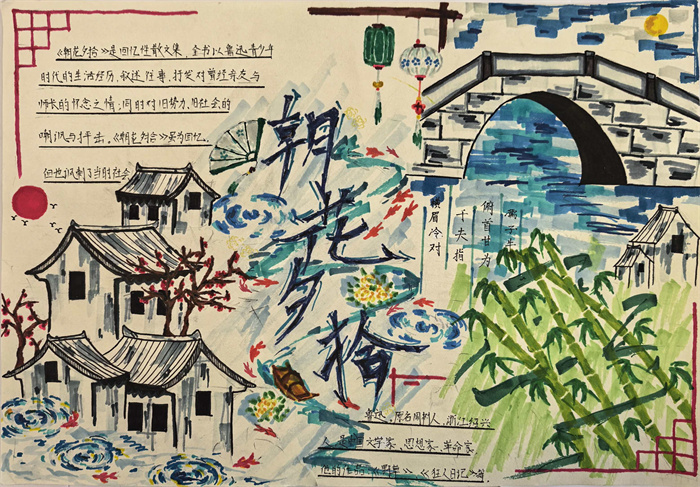 《朝花夕拾》是回忆性散文集，全书以鲁迅青少年
时代的生活经历，叙述往事，抒发对曾经亲友与
师长的怀念之情，同时对旧势力，旧社会的
嘲讽与抨击。《朝花夕拾》实为回忆，
但也讽刺了当时的社会
朝花夕拾
横眉冷对
千夫指
俯首甘为
孺子牛
鲁迅，原名周树人，浙江绍兴
人，是中国文学家、思想家、革命家，
他的作品《野草》、《狂人日记》等